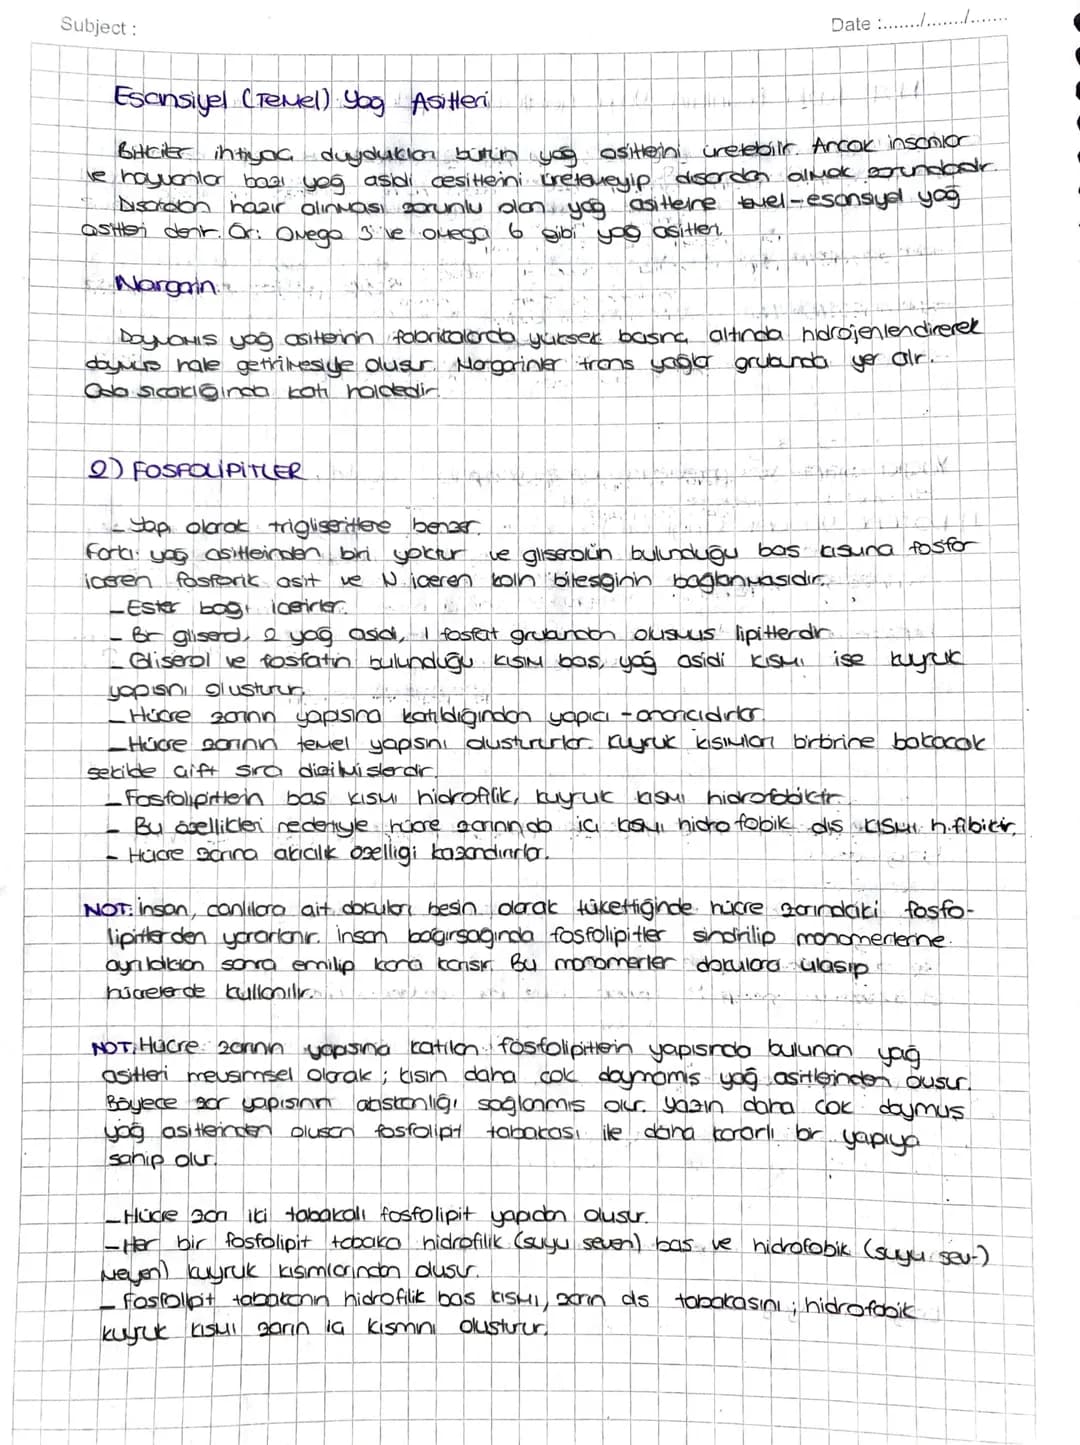 Subject :
Date :......../......../........
Esansiyel (Temel) Yağ Asitleri
Bitkiler ihtiyaç duydukları bütün yağ asitlerini üretebilir. Ancak insanlar
ve hayvanlar bazı yağ asidi çeşitlerini üretemeyip dışarıdan almak zorundadır.
Dışarıdan hazır alınması zorunlu olan yağ asitlerine temel-esansiyel yağ
asitleri denir. Ör: Omega 3 ve omega 6 gibi yağ asitleri.
Margarin
Doymamış yağ asitlerinin fabrikalarda yüksek basınç altında hidrojenlendirerek
doymuş hale getirilmesiyle oluşur. Margarinler trans yağlar grubunda yer alır.
Oda sıcaklığında katı haldedir.
2) FOSFOLİPİTLER
- Yapı olarak trigliseritlere benzer.
Farkı: yağ asitlerinden biri yoktur ve gliserolün bulunduğu baş kısuna fosfor
içeren fosforik asit ve N içeren kolin bileşiğinin bağlanmasıdır.
- Ester bağı içerirler.
- Bir gliserol, 2 yağ asidi, 1 fosfat grubundan oluşmuş lipitlerdir.
- Gliserol ve fosfatın bulunduğu kısım baş, yağ asidi kısmı ise kuyruk
yapısını oluşturur.
- Hücre zarının yapısına katıldığından yapıcı - onarıcıdırlar.
- Hücre zarının temel yapısını oluştururlar. Kuyruk kısımları birbirine bakacak
şekilde çift sıra dizilmişlerdir.
- Fosfolipitlerin baş kısmı hidrofilik, kuyruk kısmı hidrofobiktir.
- Bu özellikleri nedeniyle hücre zarınında iç kısmı hidrofobik dış kısmı h.filiktir.
- Hücre zarına akıcılık özelliği kazandırırlar.
NOT: İnsan, canlılara ait dokuları besin olarak tükettiğinde hücre zarındaki fosfo-
lipitlerden yararlanır. İnsan bağırsağında fosfolipitler sindirilip monomerlerine
ayrıldıktan sonra emilip kana karışır. Bu monomerler dokulara ulaşıp
hücrelerde kullanılır.
NOT: Hücre zarının yapısına katılan fosfolipitlerin yapısında bulunan yağ
asitleri mevsimsel olarak ; kışın daha çok doymamış yağ asitlerinden oluşur.
Böylece zar yapısının akışkanlığı sağlanmış olur. Yazın daha çok doymuş
yağ asitlerinden oluşan fosfolipit tabakası ile daha kararlı bir yapıya
sahip olur.
- Hücre zarı iki tabakalı fosfolipit yapıdan oluşur.
- Her bir fosfolipit tabaka hidrofilik (suyu seven) baş ve hidrofobik (suyu sev-)
meyen) kuyruk kısımlarından oluşur.
- Fosfolipit tabakanın hidrofilik baş kısmı, zarın dış tabakasını ; hidrofobik
kuyruk kısmı zarın iç kısmını oluşturur.